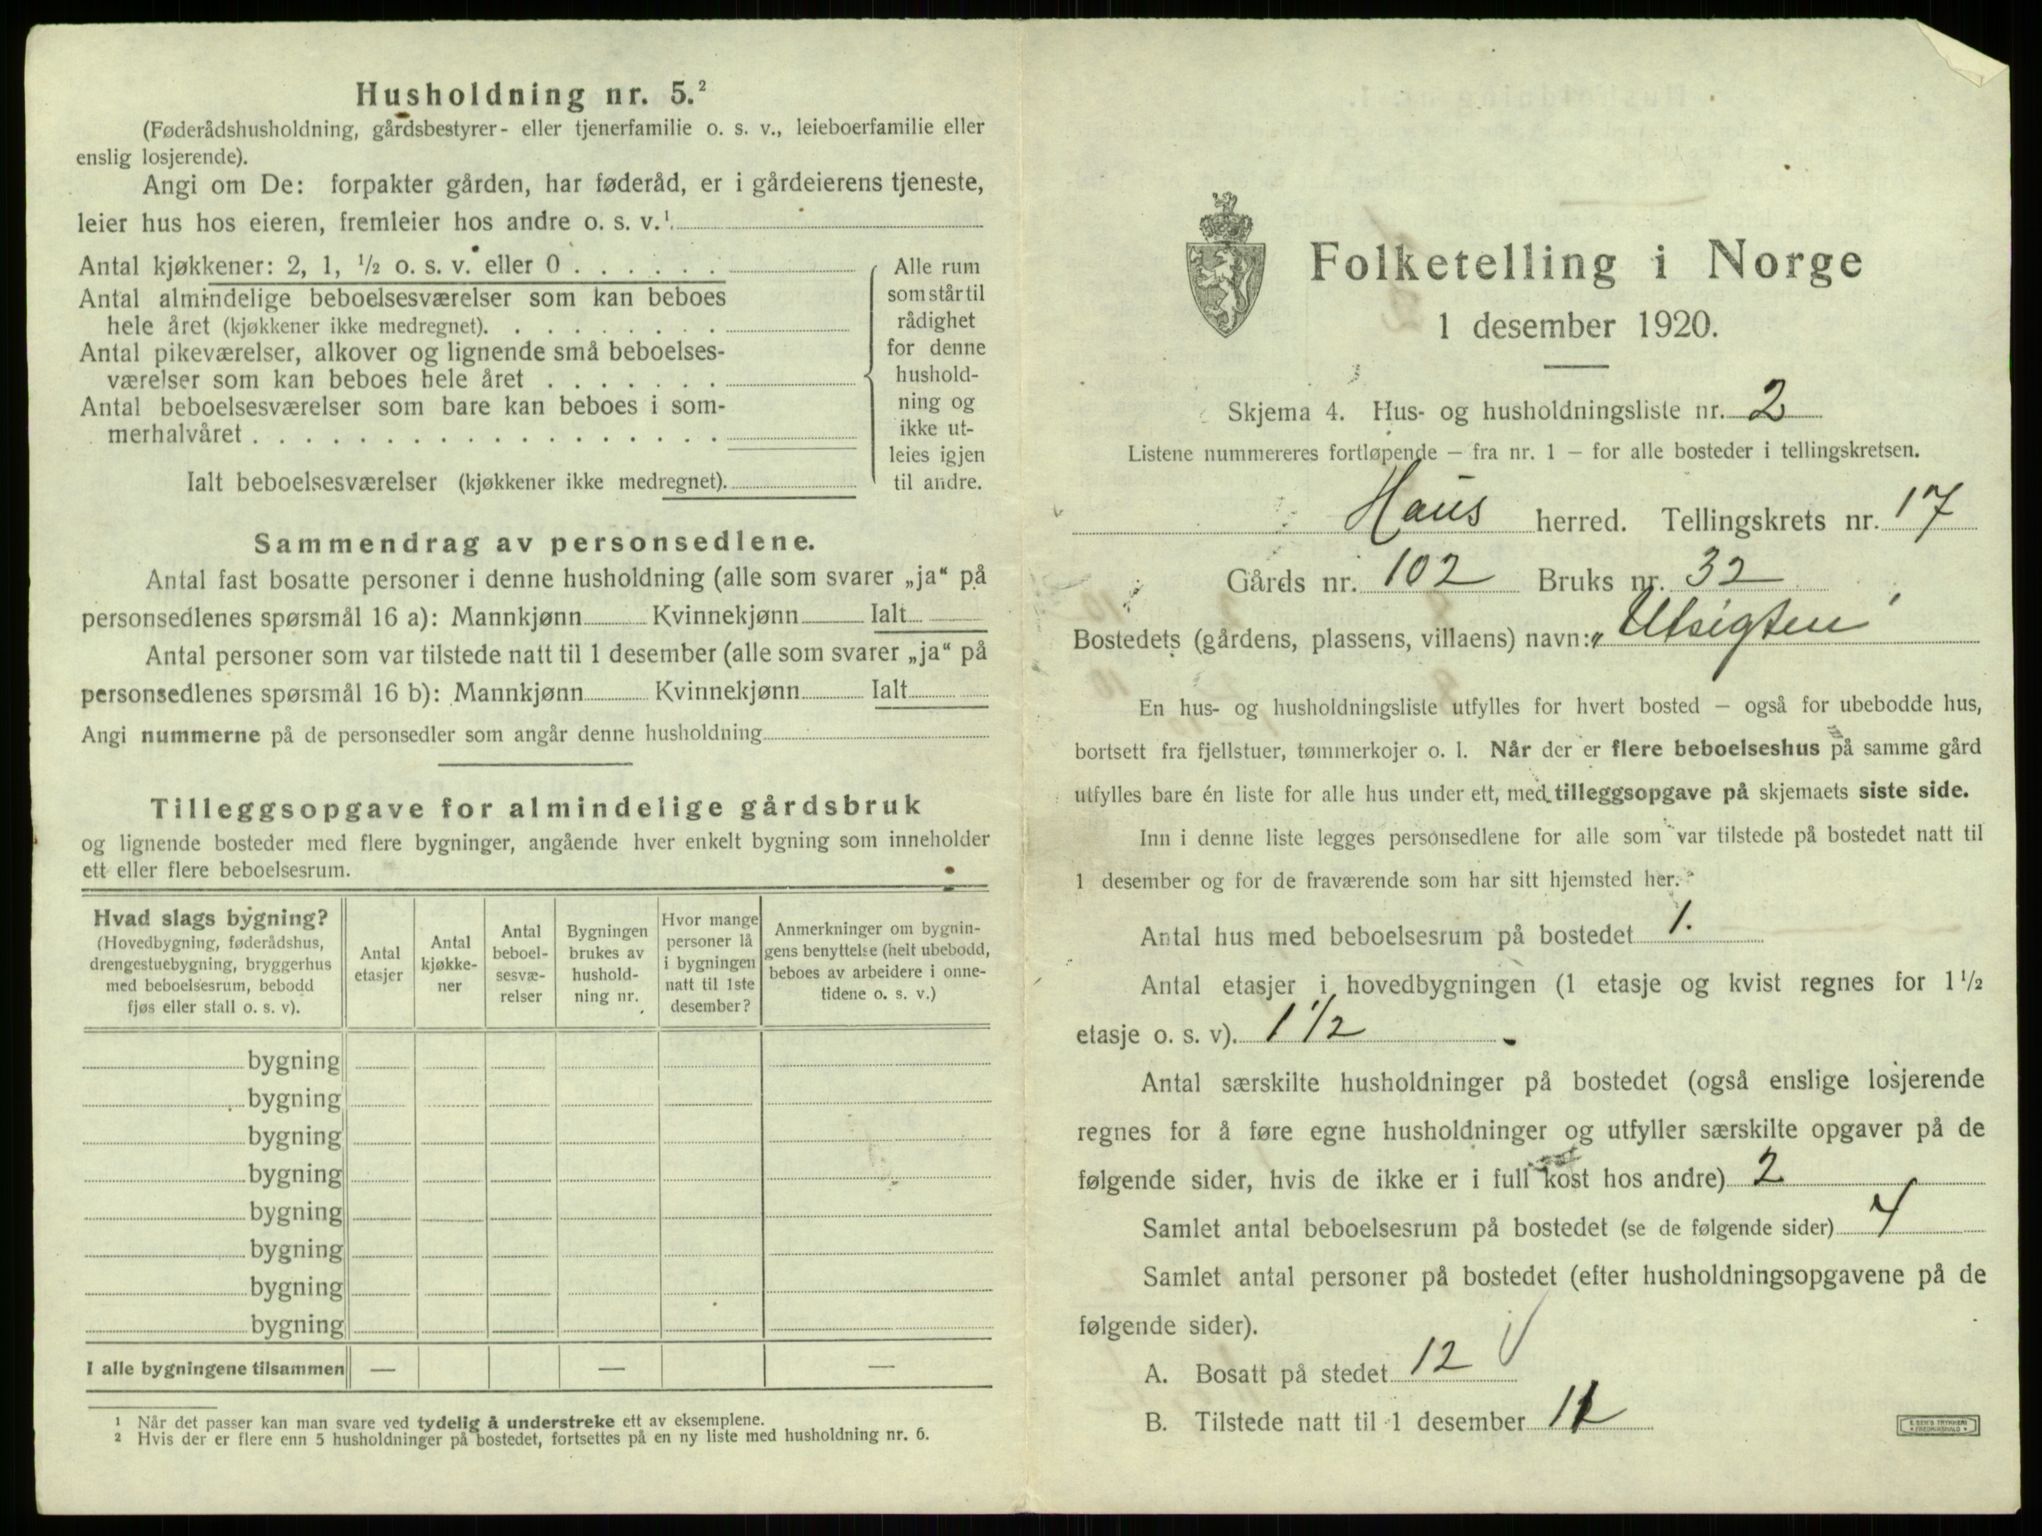 Husholdning nr. 5.²
(Føderådshusholdning, gårdsbestyrer- eller tjenerfamilie o. s. v., leieboerfamilie eller
enslig losjerende).
Angi om De: forpakter gården, har føderåd, er i gårdeierens tjeneste,
leier hus hos eieren, fremleier hos andre o. s. v.¹
Antal kjøkkener: 2, 1, ½ o. s. v. eller 0
Antal almindelige beboelsesværelser som kan beboes
hele året (kjøkkener ikke medregnet).
Antal pikeværelser, alkover og lignende små beboelses-
værelser som kan beboes hele året
Antal beboelsesværelser som bare kan beboes i som-
merhalvåret
Ialt beboelsesværelser (kjøkkener ikke medregnet).
Alle rum
som står til
rådighet
for denne
hushold-
ning og
ikke ut-
leies igjen
til andre.
Sammendrag av personsedlene.
Antal fast bosatte personer i denne husholdning (alle som svarer „ja“ på
personsedlenes spørsmål 16 a): Mannkjønn Kvinnekjønn Ialt
Antal personer som var tilstede natt til 1 desember (alle som svarer „ja“ på
personsedlenes spørsmål 16 b): Mannkjønn Kvinnekjønn Ialt
Angi nummerne på de personsedler som angår denne husholdning
Tilleggsopgave for almindelige gårdsbruk
og lignende bosteder med flere bygninger, angående hver enkelt bygning som inneholder
ett eller flere beboelsesrum.
Hvad slags bygning?
(Hovedbygning, føderådshus,
drengestuebygning, bryggerhus
med beboelsesrum, bebodd
fjøs eller stall o. s. v).
Antal
etasjer
Antal
kjøkke-
ner
Antal
beboel-
sesvæ-
relser
Bygningen
brukes av
hushold-
ning nr.
Hvor mange
personer lå
i bygningen
natt til 1ste
desember?
Anmerkninger om bygnin-
gens benyttelse (helt ubebodd,
beboes av arbeidere i onne-
tidene o. s. v.)
bygning
bygning
bygning
bygning
bygning
bygning
bygning
bygning
I alle bygningene tilsammen — — —
¹ Når det passer kan man svare ved tydelig å understreke ett av eksemplene.
² Hvis der er flere enn 5 husholdninger på bostedet, fortsettes på en ny liste med husholdning nr. 6.
Folketelling i Norge
1 desember 1920.
Skjema 4. Hus- og husholdningsliste nr. 2
Listene nummereres fortløpende – fra nr. 1 – for alle bosteder i tellingskretsen.
Haus herred. Tellingskrets nr. 17
Gårds nr. 102 Bruks nr. 32
Bostedets (gårdens, plassens, villaens) navn: „Utsigten"
En hus- og husholdningsliste utfylles for hvert bosted – også for ubebodde hus,
bortsett fra fjellstuer, tømmerkojer o. l. Når der er flere beboelseshus på samme gård
utfylles bare én liste for alle hus under ett, med tilleggsopgave på skjemaets siste side.
Inn i denne liste legges personsedlene for alle som var tilstede på bostedet natt til
1 desember og for de fraværende som har sitt hjemsted her.
Antal hus med beboelsesrum på bostedet 1.
Antal etasjer i hovedbygningen (1 etasje og kvist regnes for 1½
etasje o. s. v). 1 1/2
Antal særskilte husholdninger på bostedet (også enslige losjerende
regnes for å føre egne husholdninger og utfyller særskilte opgaver på de
følgende sider, hvis de ikke er i full kost hos andre) 2
Samlet antal beboelsesrum på bostedet (se de følgende sider) 4
Samlet antal personer på bostedet (efter husholdningsopgavene på de
følgende sider).
A. Bosatt på stedet 12
B. Tilstede natt til 1 desember